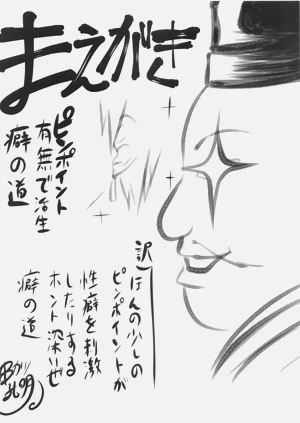 まえがき
ピンポイント
有無で治生
癖の道
訳)ほんの少しの
ピンポイントが
性癖を刺激
したりする
ホント深いぜ
癖の道